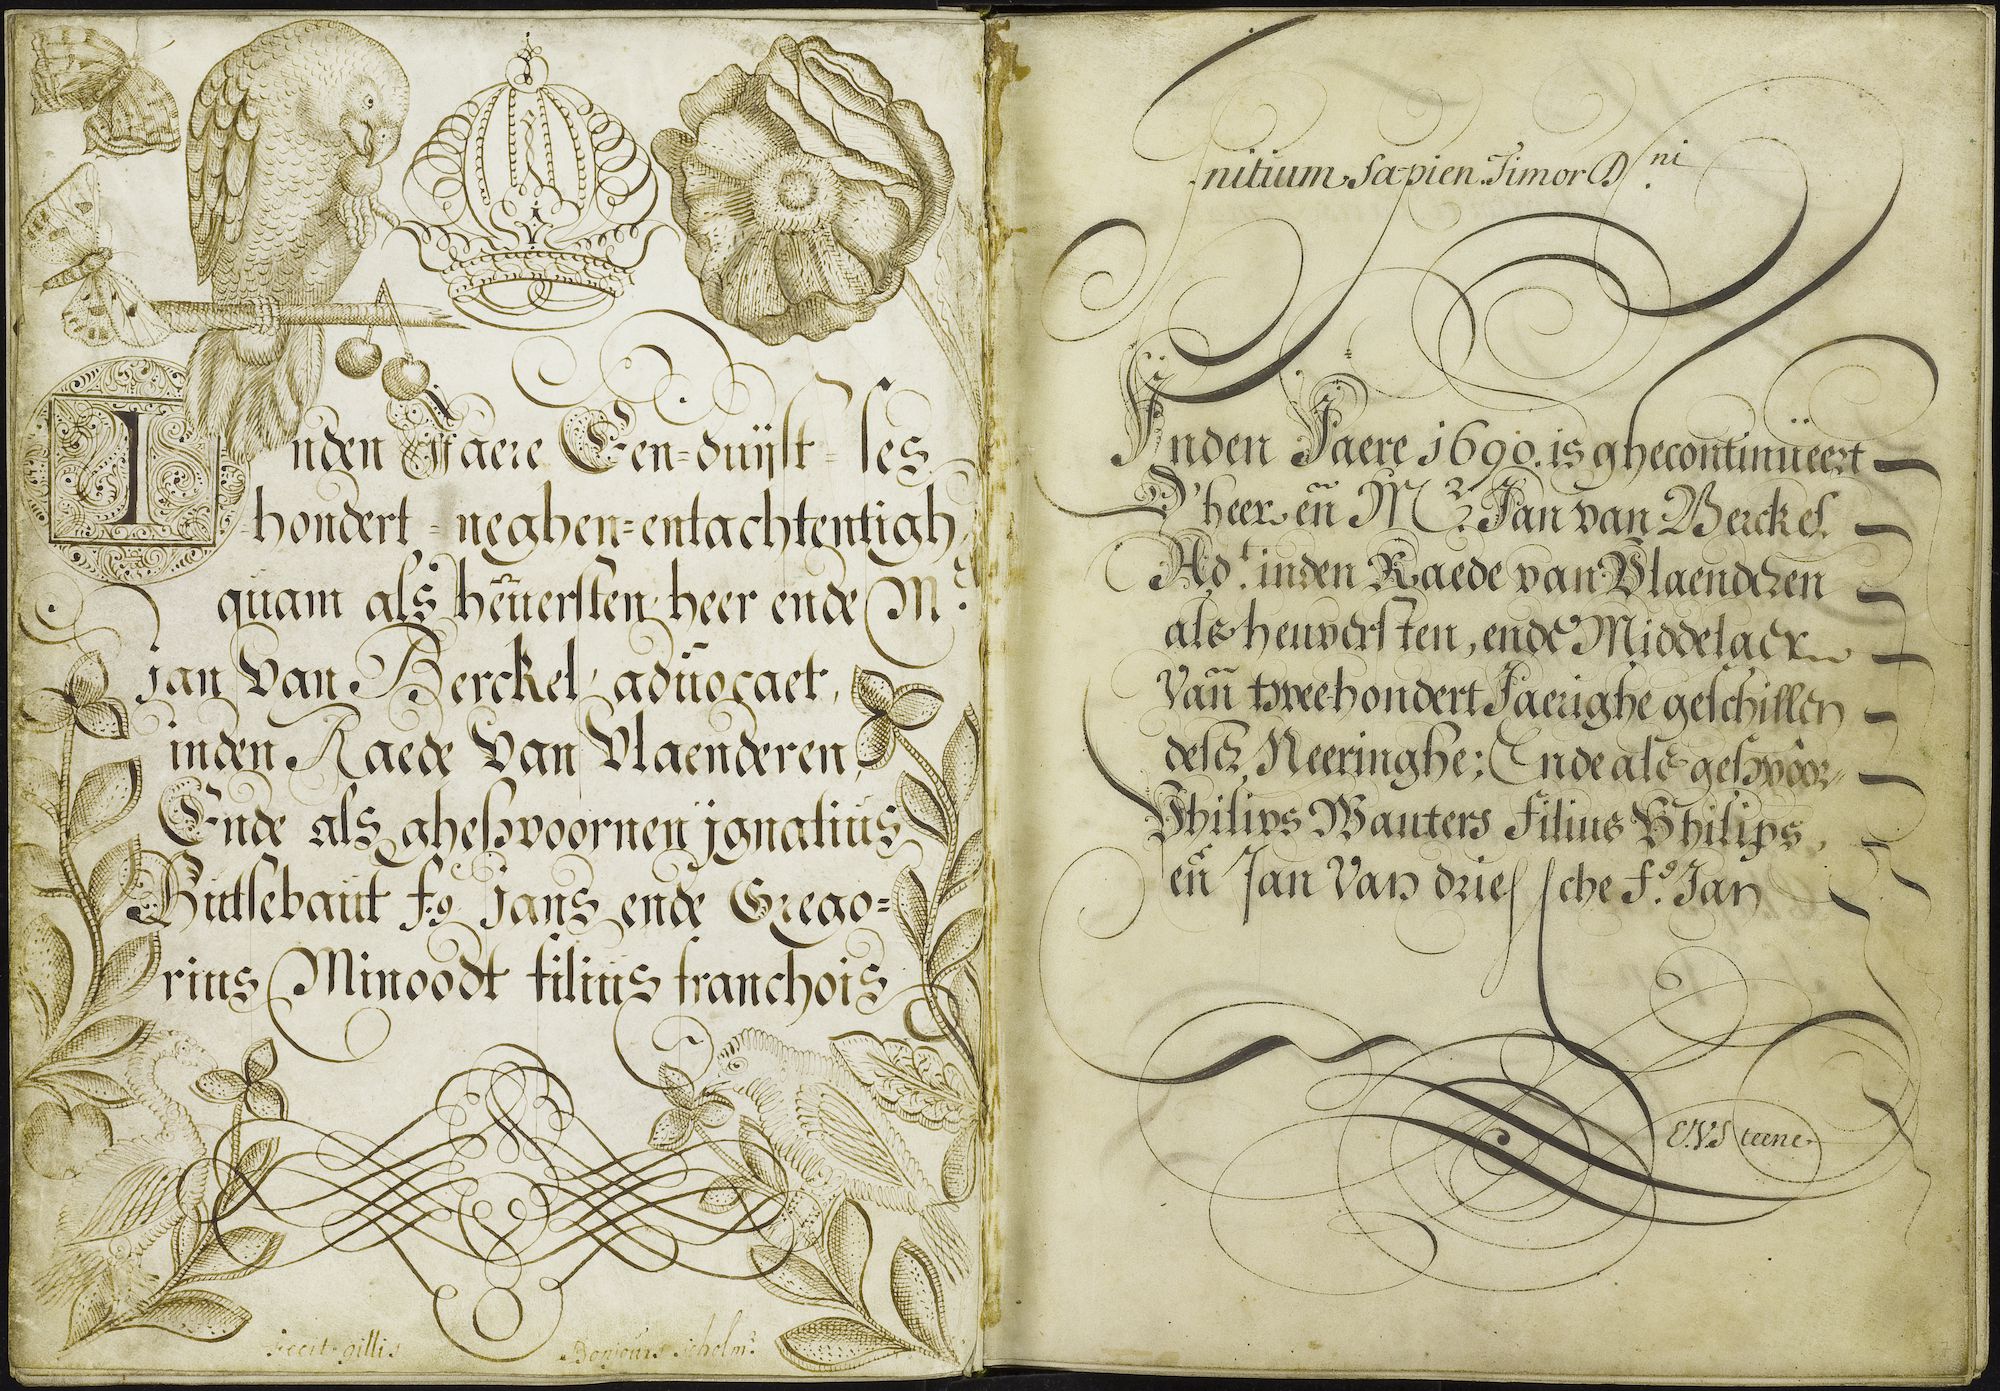 Inden Jaere Een=duijst=ses
hondert=neghen=entachtentigh,
quam als heuersten heer ende Mr.
jan Van Berckel, aduocaet,
inden Raede Van Vlaenderen,
Ende als gheswoornen jgnatius
Butsebaut fs. jans ende Grego=
rius Minoodt filius franchois
fecit gillis Bonjours scholmr.
Initium Sapien. Timor Dni.
Inden Jaere 1690. is ghecontinueert
D'heer en Mr. Jan van Berckel.
Adt. inden Raede van Vlaenderen
als heuversten, ende Middelaer
Van tweehondert Jaerighe geschillen
deser Neeringhe; Ende als geswoor=
Philips Wauters Filius Philips,
en Jan Van driessche fo. Jan
E.V.Steene.